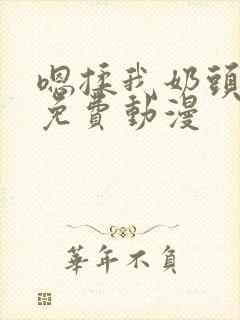 嗯揉我奶頭
免費動漫
華年不負